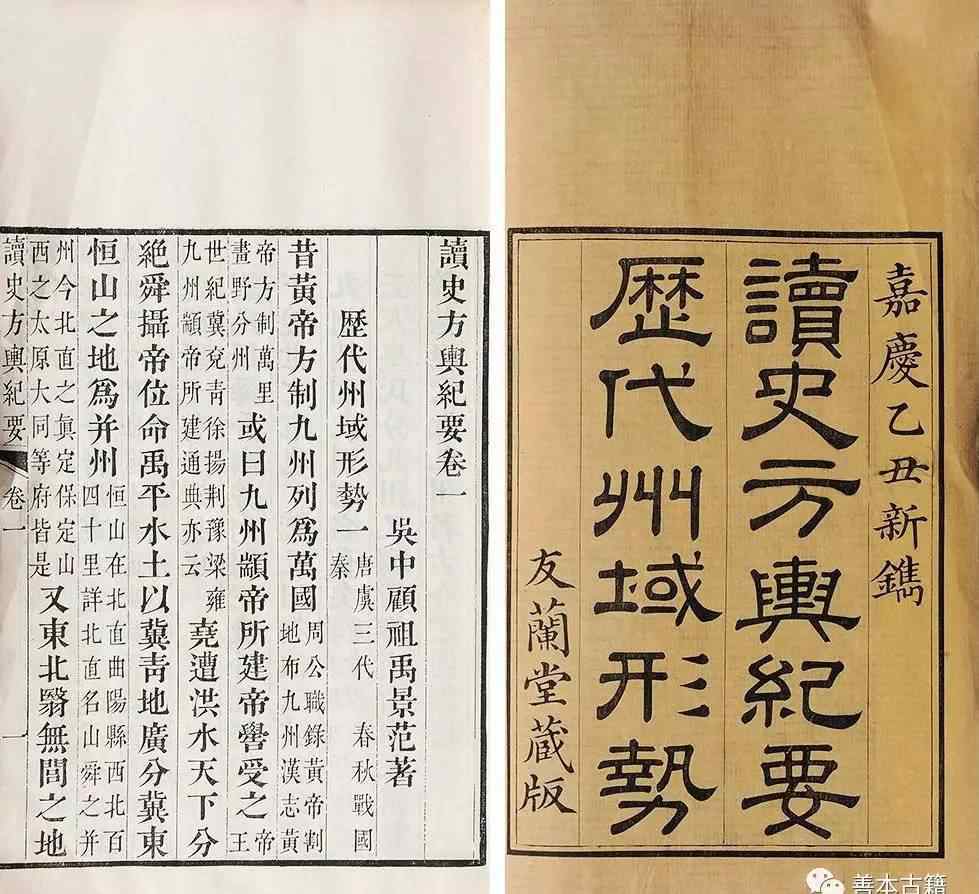 嘉慶乙丑新鐫
讀史方輿紀要
歴代州域形勢
友蘭堂藏版
善本古籍
讀史方輿紀要卷一
吳中顧祖禹景范著
歴代州域形勢一 唐虞三代 春秋戰國 秦
昔黃帝方制九州列爲萬國 周公職錄黃帝割 地布九州漢志黃
帝方制萬里 畫野分州 或曰九州顓帝所建帝嚳受之 帝 王
世紀冀兗靑徐揚荆豫梁雍 九州顓帝所建通典亦云 堯遭洪水天下分
絶舜攝帝位命禹平水土以冀靑地廣分冀東
恒山之地爲并州 恒山在北直曲陽縣西北百 四十里詳北直名山舜之并
州今北直之眞定保定山 西之太原大同等府皆是 又東北毉無閭之地
讀史方輿紀要 卷一 一